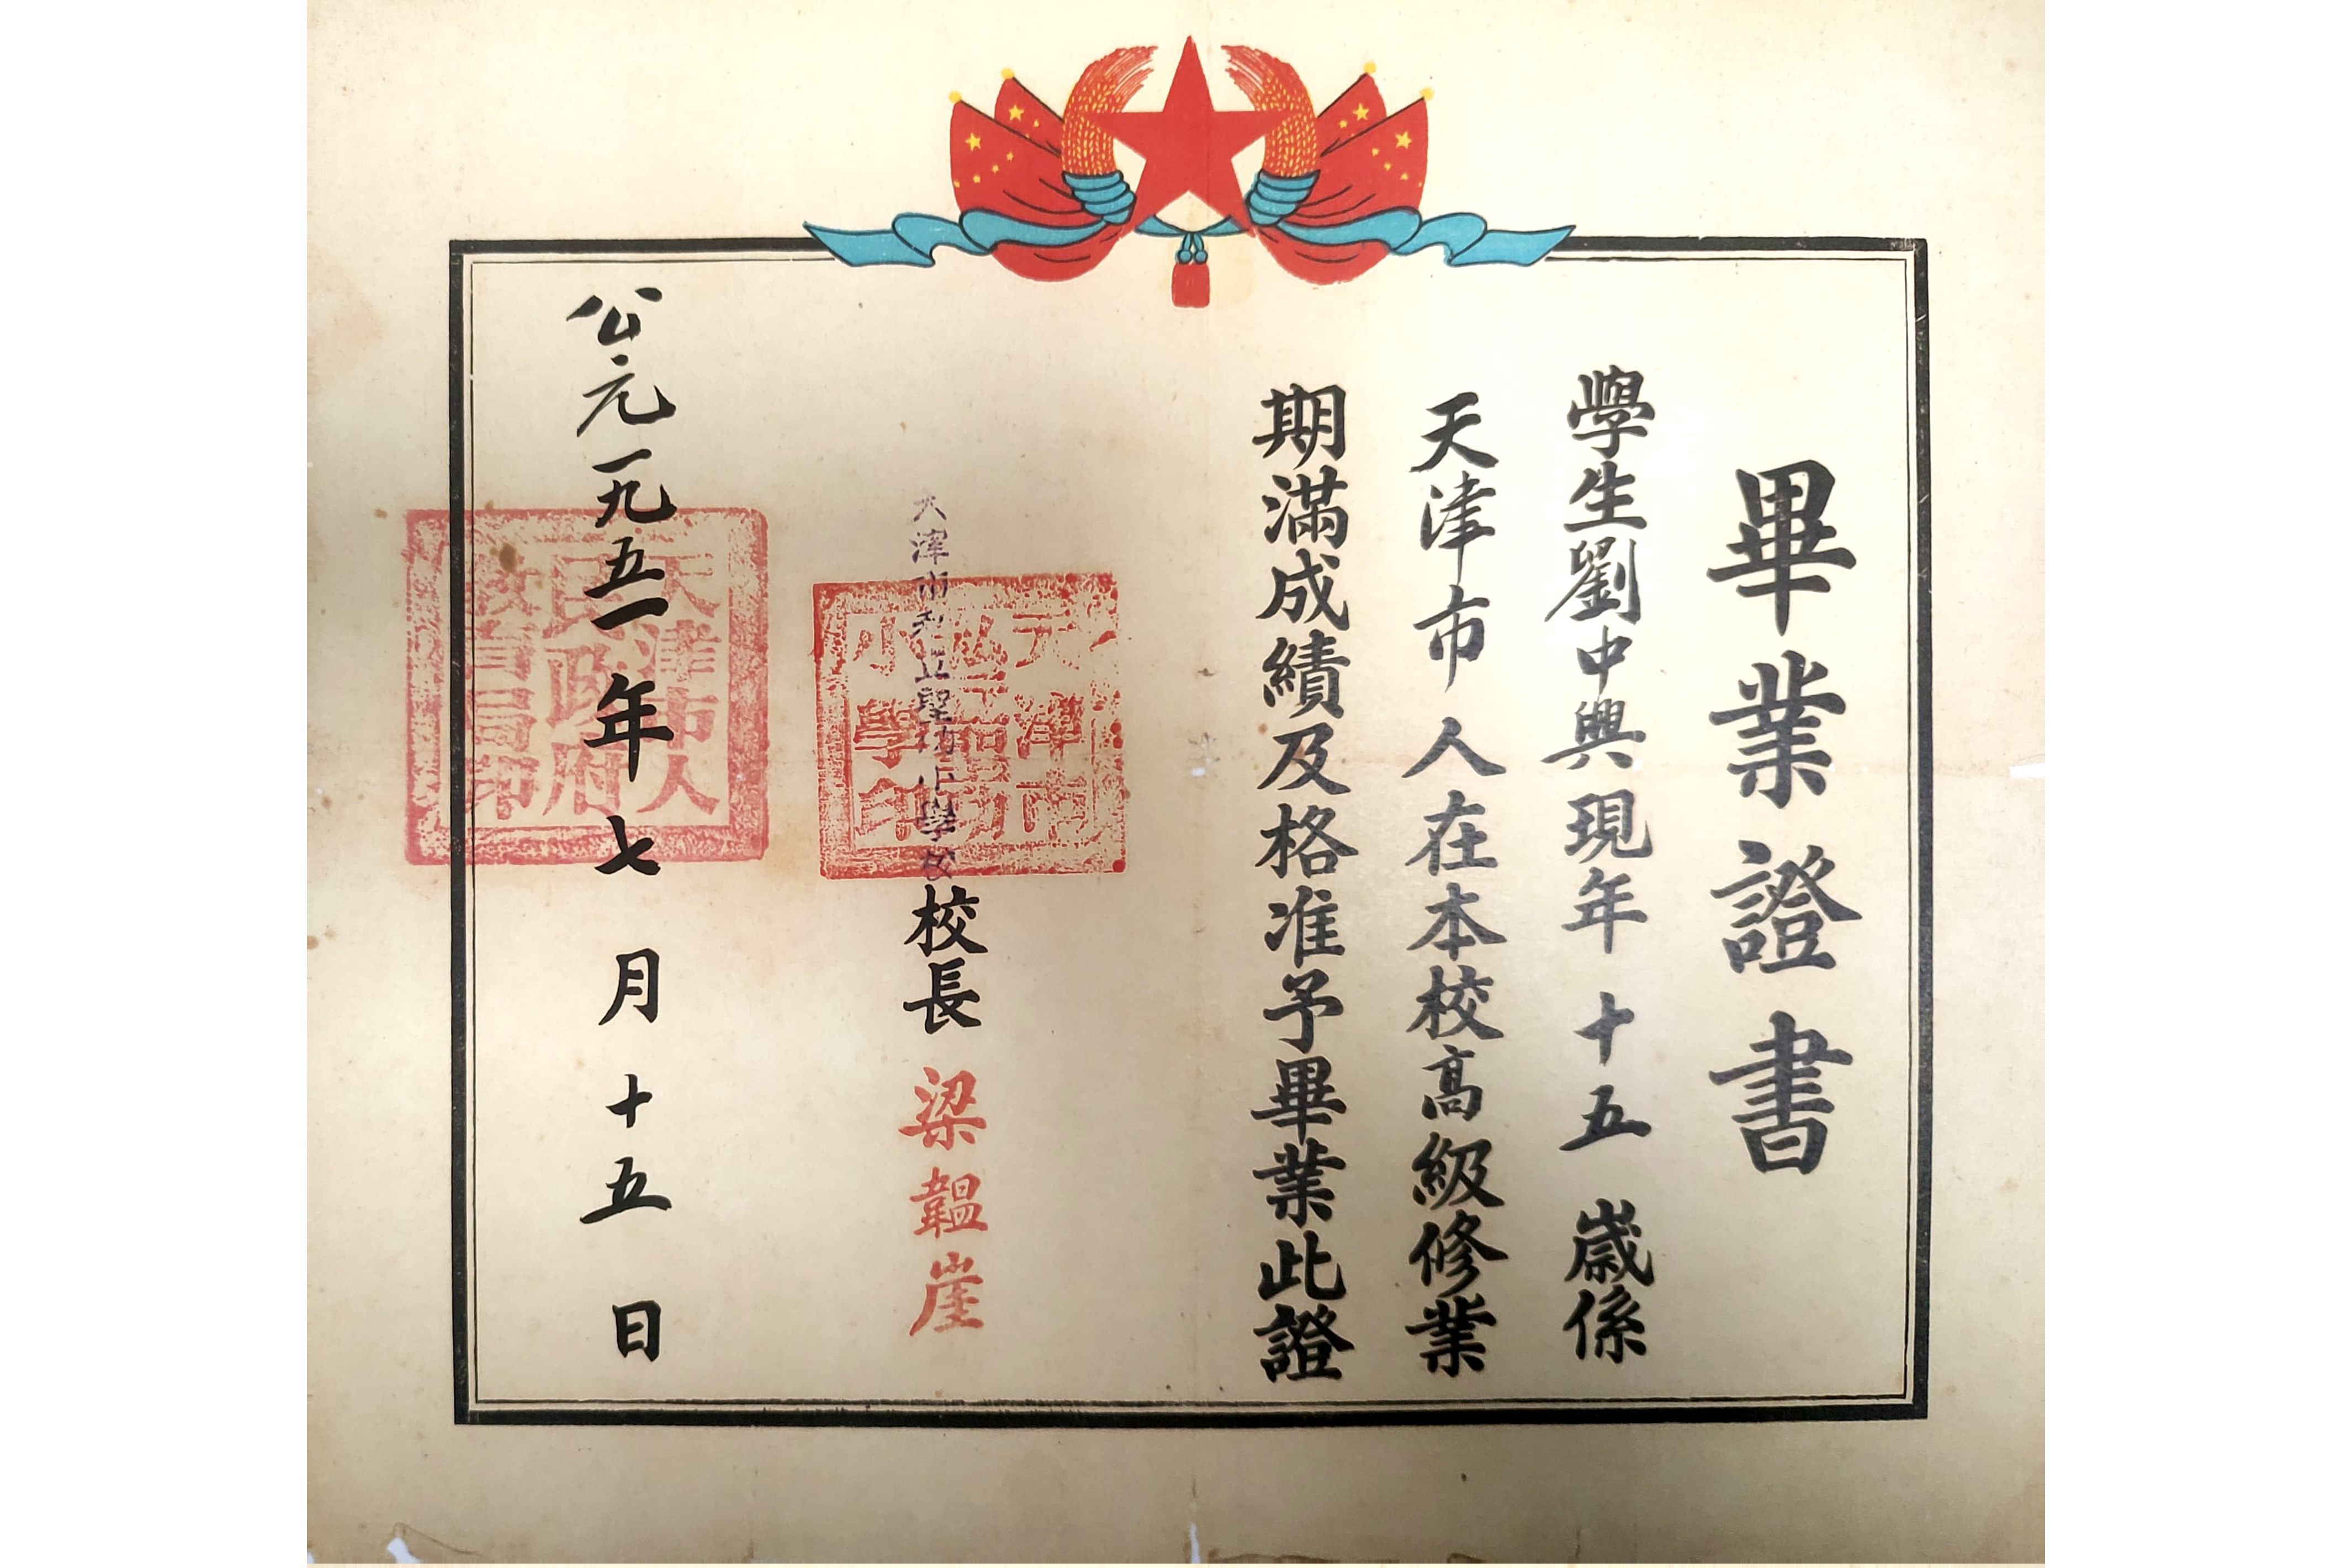 畢業證書
學生劉中興現年十五歲係
天津市人在本校高級修業
期滿成績及格准予畢業此證
天津市私立聖功小學校校長梁韞崖
天津市私立聖功小學印
公元一九五一年七月十五日
天津市人民政府教育局印